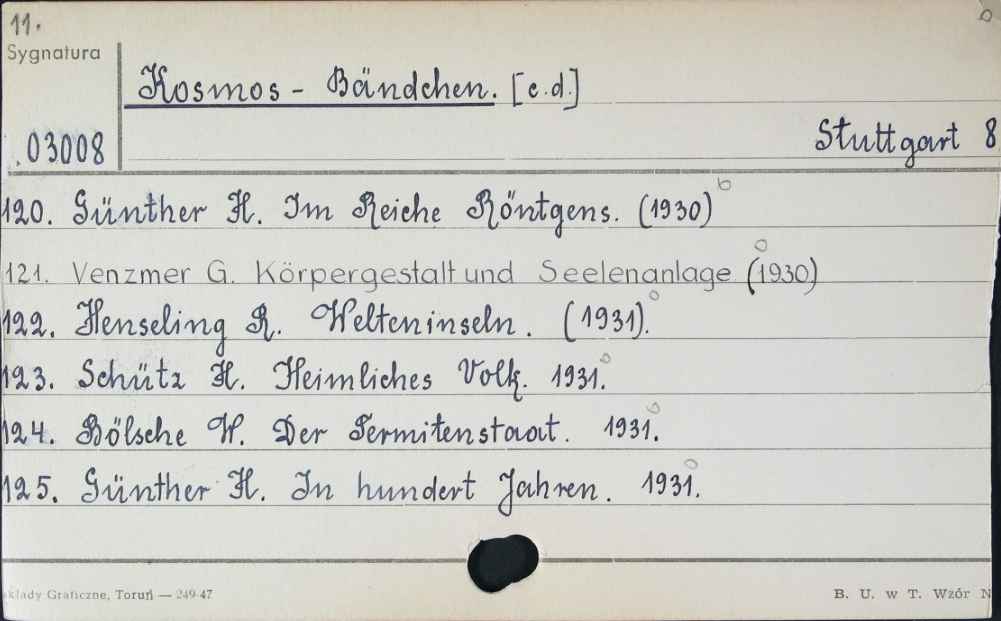 11.
Sygnatura
Kosmos - Bändchen. [c.d.]
03008
Stuttgart 8
120. Günther H. Im Reiche Röntgens. (1930)
121. Venzmer G. Körpergestalt und Seelenanlage (1930)
122. Henseling R. Welteninseln. (1931).
123. Schütz H. Heimliches Volk. 1931.
124. Bölsche W. Der Termitenstaat. 1931.
125. Günther H. In hundert Jahren. 1931.
kłady Graficzne, Toruń — 249-47
B. U. w T. Wzór N